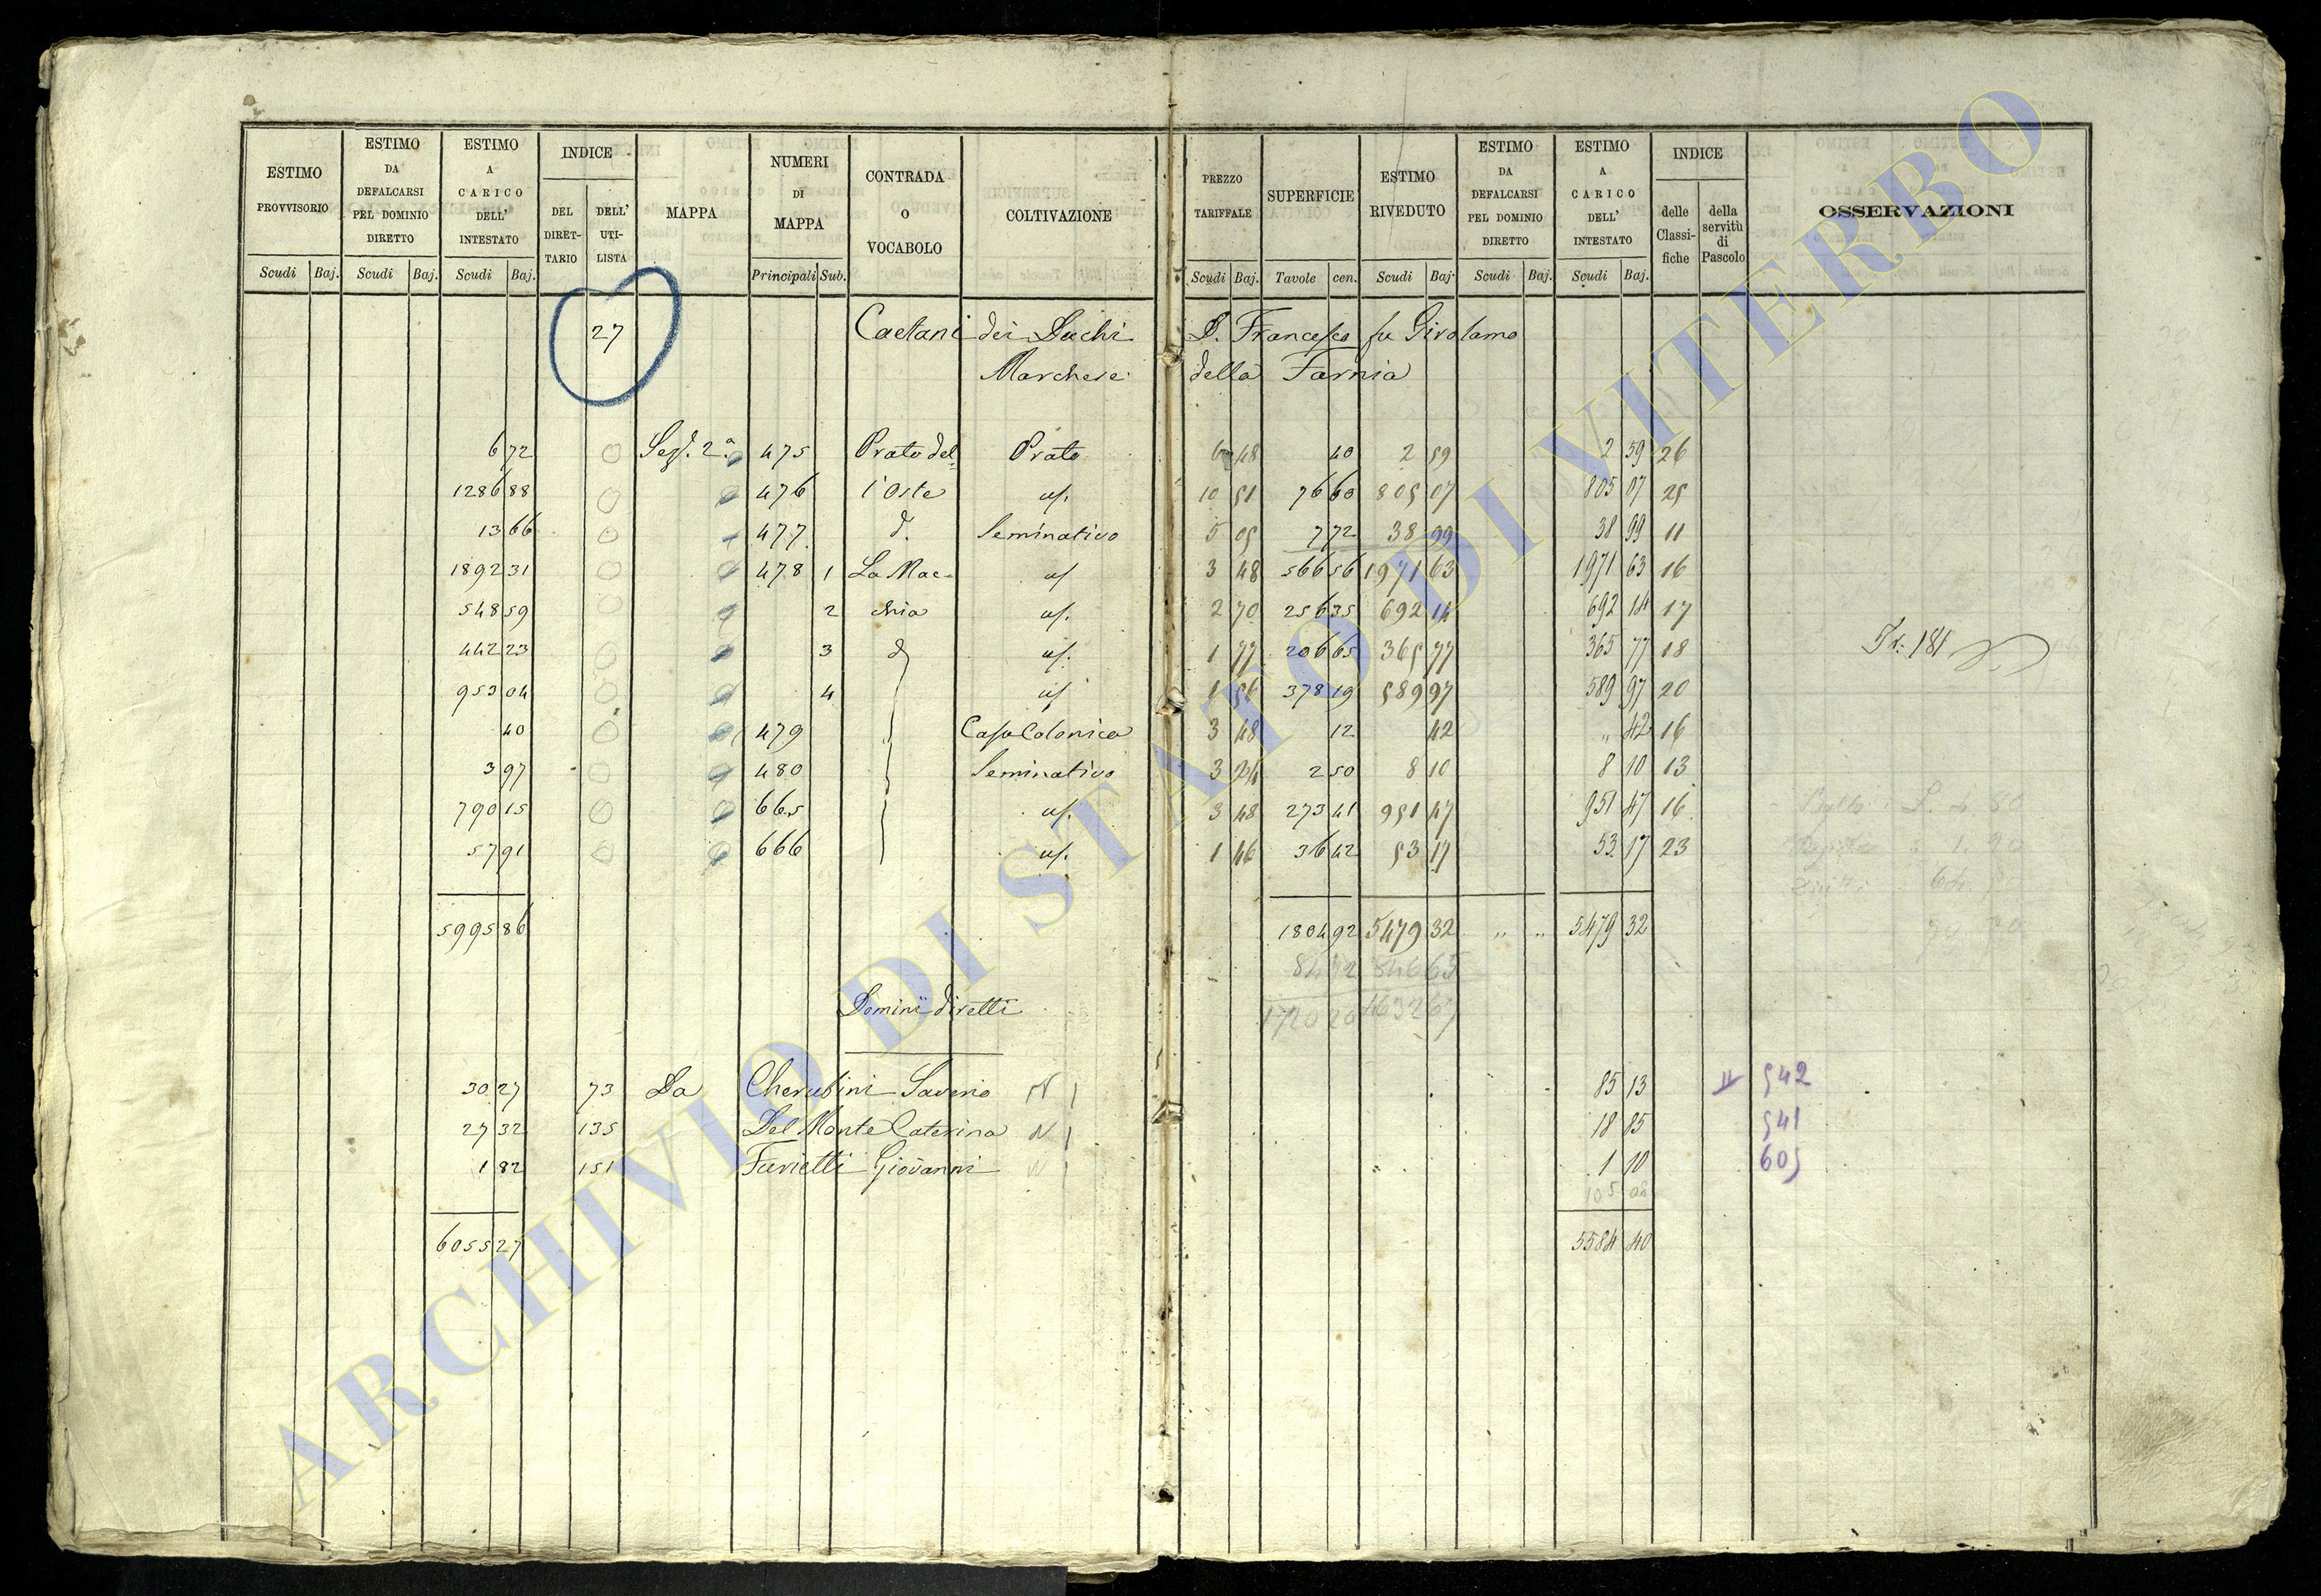 ESTIMO PROVVISORIO | ESTIMO DA DEFALCARSI PEL DOMINIO DIRETTO | ESTIMO A CARICO DELL' INTESTATO | INDICE | MAPPA | NUMERI DI MAPPA | CONTRADA O VOCABOLO | COLTIVAZIONE | PREZZO TARIFFALE | SUPERFICIE | ESTIMO RIVEDUTO | ESTIMO DA DEFALCARSI PEL DOMINIO DIRETTO | ESTIMO A CARICO DELL' INTESTATO | INDICE | OSSERVAZIONI
DEL DIRET-TARIO | DELL' UTI-LISTA | delle Classi-fiche | della servitù di Pascolo
Scudi | Baj. | Scudi | Baj. | Scudi | Baj. | Principali | Sub. | Scudi | Baj. | Tavole | cen. | Scudi | Baj. | Scudi | Baj. | Scudi | Baj.
27 Caetani dei Duchi D. Francesco fu Girolamo
Marchese della Farnia
6 72 Sez. 2.a 475 Prato del Prato 6 48 40 2 59 2 59 26
1286 88 476 l'Oste id. 10 51 76 60 805 07 805 07 25
13 66 477 d. Seminativo 5 05 7 72 38 99 38 99 11
1892 31 478 1 La Mac- id 3 48 566 56 1971 63 1971 63 16
548 59 2 chia id. 2 70 256 35 692 14 692 14 17
442 23 3 d id. 1 77 206 65 365 77 365 77 18 Tr: 181
953 04 4 id 1 56 378 19 589 97 589 97 20
40 479 Casa Colonica 3 48 12 42 „ 42 16
3 97 480 Seminativo 3 24 2 50 8 10 8 10 13
790 15 665 id. 3 48 273 41 951 47 951 47 16
57 91 666 id. 1 46 36 42 53 17 53 17 23
5995 86 1804 92 5479 32 „ „ 5479 32
84 72 846 65
1720 20 4632 67
Dominii diretti
30 27 73 Da Cherubini Saverio N 1 85 13 542
27 32 135 Del Monte Caterina N 1 18 85 541
1 82 151 Furietti Giovanni N 1 1 10 605
105 08
6055 27 5584 40
ARCHIVIO DI STATO DI VITERBO